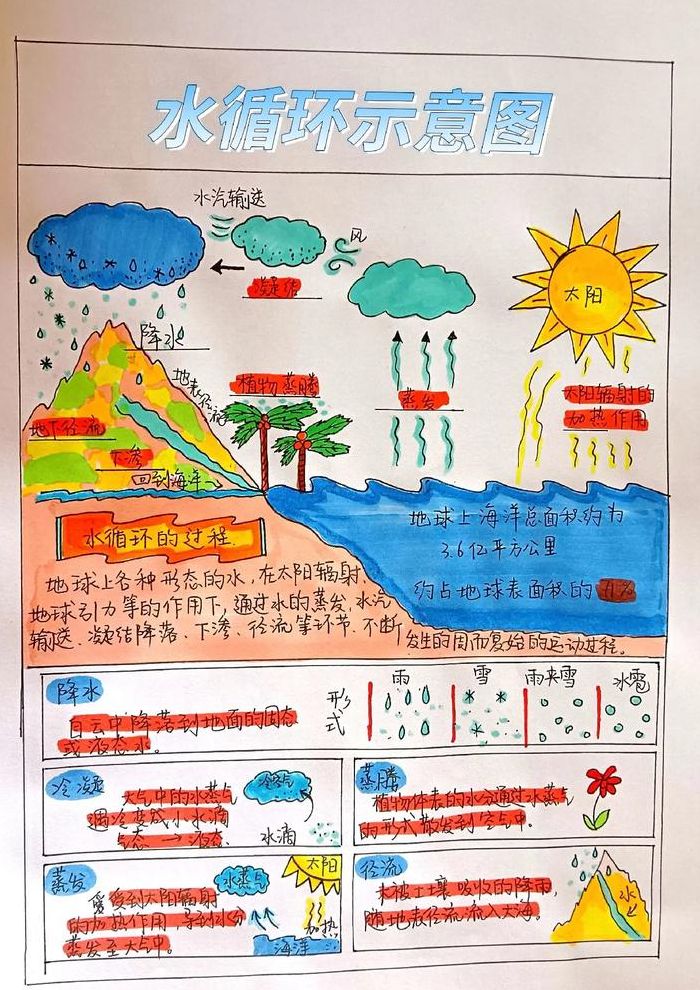 水循环示意图
水汽输送
风
凝结
太阳
降水
地表径流
植物蒸腾
蒸发
太阳辐射的
加热作用
地下径流
下渗
回到海洋
地球上海洋总面积约为
3.6亿平方公里
约占地球表面积的71%
水循环的过程
地球上各种形态的水,在太阳辐射、
地球引力等的作用下,通过水的蒸发、水汽
输送、凝结降落、下渗、径流等环节、不断发生的周而复始的运动过程。
降水
自云中降落到地面的固态
或液态水。
形式
雨
雪
雨夹雪
冰雹
冷凝
大气中的水蒸气
遇冷变成小水滴
气态→液态.
冷空气
水滴
蒸腾
植物体表的水分通过水蒸气
的形式散发到空气中.
蒸发
受到太阳辐射
的加热作用,导致水分
蒸发至大气中。
水蒸气
太阳
加热
海洋
径流
未被土壤吸收的降雨,
随地表径流流入大海.
水